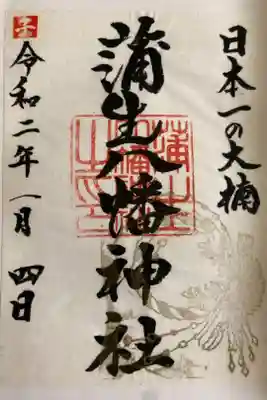 日本一の大楠
蒲生八幡神社
子
令和二年一月四日